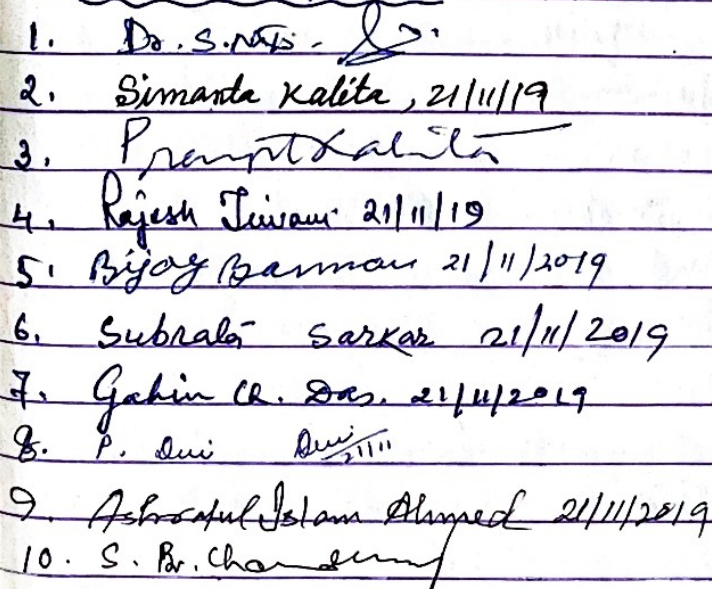 1. Dr. S. Nath.
2. Simanta Kalita, 21/11/19
3. Kalita
4. Rajesh Tiwari 21/11/19
5. Bijoy Barman 21/11/2019
6. Subrata Sarkar 21/11/2019
7. Gahin CR. Das. 21/11/2019
8. P. Devi Devi 21/11
9. Ashraful Islam Ahmed 21/11/2019
10. S. Br.